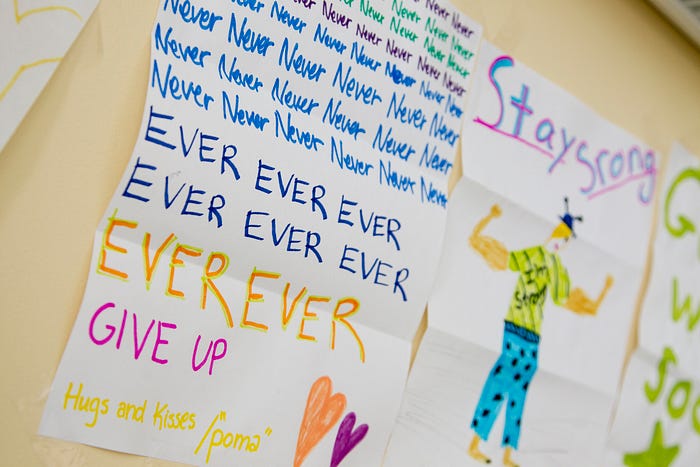 Never Never Never
Never Never Never Never
Never Never Never Never Never
Never Never Never Never Never Never
Never Never Never Never Never Never
Never Never Never Never Never Never
Never Never Never Never Never Never Never
EVER EVER EVER
EVER EVER EVER
EVER EVER
GIVE UP
Hugs and Kisses / "poma"
Stay Srong
I'm
strong